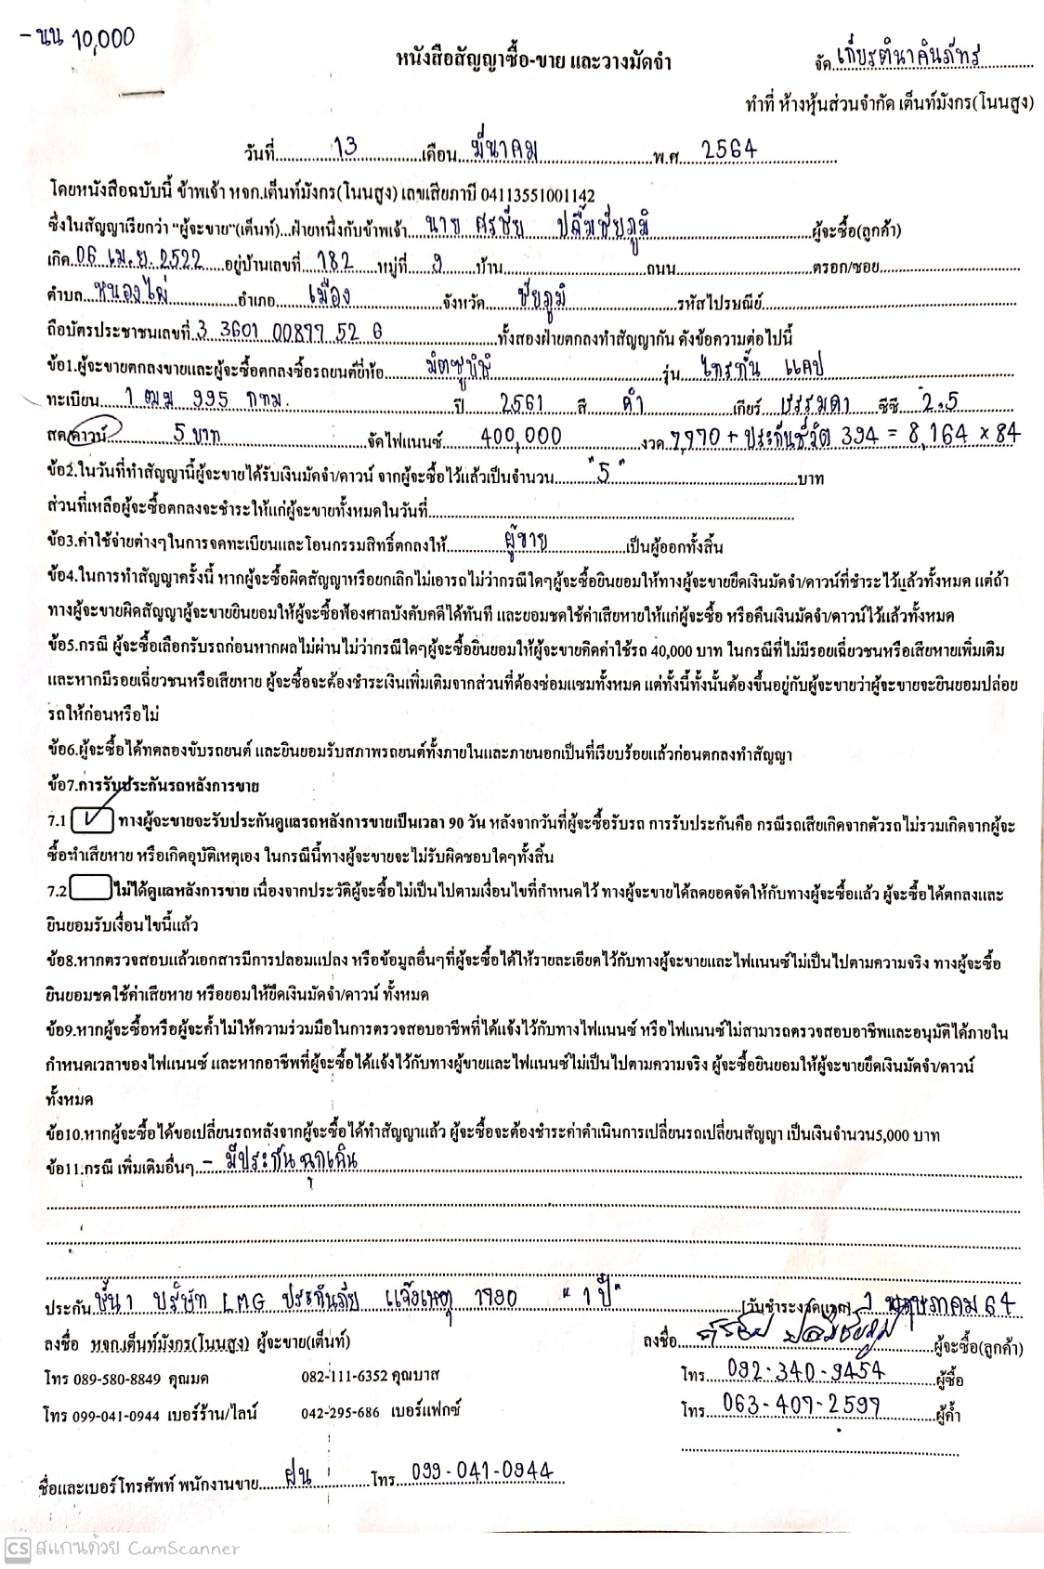 - นน 10,000
หนังสือสัญญาซื้อ-ขาย และวางมัดจำ
จัด เกียรตินาคินภัทร
ทำที่ ห้างหุ้นส่วนจำกัด เต็นท์มังกร(โนนสูง)
วันที่ 13 เดือน มีนาคม พ.ศ 2564
โดยหนังสือฉบับนี้ ข้าพเจ้า หจก.เต็นท์มังกร(โนนสูง) เลขเสียภาษี 04113551001142
ซึ่งในสัญญาเรียกว่า "ผู้จะขาย"(เต็นท์)...ฝ่ายหนึ่งกับข้าพเจ้า นาย ศรชัย ปลื้มชัยภูมิ ผู้จะซื้อ(ลูกค้า)
เกิด 06 เม.ย. 2522 อยู่บ้านเลขที่ 182 หมู่ที่ 9 บ้าน ถนน ตรอก/ซอย
ตำบล หนองไผ่ อำเภอ เมือง จังหวัด ชัยภูมิ รหัสไปรษณีย์
ถือบัตรประชาชนเลขที่ 3 3601 00877 52 6 ทั้งสองฝ่ายตกลงทำสัญญากัน ดังข้อความต่อไปนี้
ข้อ1.ผู้จะขายตกลงขายและผู้จะซื้อตกลงซื้อรถยนต์ยี่ห้อ มิตซูบิชิ รุ่น ไทรทัน แคป
ทะเบียน 1 ฒฆ 995 กทม. ปี 2561 สี ดำ เกียร์ ธรรมดา ซีซี 2.5
สด/ดาวน์ 5 บาท จัดไฟแนนซ์ 400,000 งวด 7,770 + ประกันชีวิต 394 = 8,164 x 84
ข้อ2.ในวันที่ทำสัญญานี้ผู้จะขายได้รับเงินมัดจำ/ดาวน์ จากผู้จะซื้อไว้แล้วเป็นจำนวน "5" บาท
ส่วนที่เหลือผู้จะซื้อตกลงจะชำระให้แก่ผู้จะขายทั้งหมดในวันที่
ข้อ3.ค่าใช้จ่ายต่างๆในการจดทะเบียนและโอนกรรมสิทธิ์ตกลงให้ ผู้ขาย เป็นผู้ออกทั้งสิ้น
ข้อ4.ในการทำสัญญาครั้งนี้ หากผู้จะซื้อผิดสัญญาหรือยกเลิกไม่เอารถไม่ว่ากรณีใดๆผู้จะซื้อยินยอมให้ทางผู้จะขายยึดเงินมัดจำ/ดาวน์ที่ชำระไว้แล้วทั้งหมด แต่ถ้า
ทางผู้จะขายผิดสัญญาผู้จะขายยินยอมให้ผู้จะซื้อฟ้องศาลบังคับคดีได้ทันที และยอมชดใช้ค่าเสียหายให้แก่ผู้จะซื้อ หรือคืนเงินมัดจำ/ดาวน์ไว้แล้วทั้งหมด
ข้อ5.กรณี ผู้จะซื้อเลือกรับรถก่อนหากผลไม่ผ่านไม่ว่ากรณีใดๆผู้จะซื้อยินยอมให้ผู้จะขายคิดค่าใช้รถ 40,000 บาท ในกรณีที่ไม่มีรอยเฉี่ยวชนหรือเสียหายเพิ่มเติม
และหากมีรอยเฉี่ยวชนหรือเสียหาย ผู้จะซื้อจะต้องชำระเงินเพิ่มเติมจากส่วนที่ต้องซ่อมแซมทั้งหมด แต่ทั้งนี้ทั้งนั้นต้องขึ้นอยู่กับผู้จะขายว่าผู้จะขายจะยินยอมปล่อย
รถให้ก่อนหรือไม่
ข้อ6.ผู้จะซื้อได้ทดลองขับรถยนต์ และยินยอมรับสภาพรถยนต์ทั้งภายในและภายนอกเป็นที่เรียบร้อยแล้วก่อนตกลงทำสัญญา
ข้อ7.การรับประกันรถหลังการขาย
7.1 ✓ ทางผู้จะขายจะรับประกันดูแลรถหลังการขายเป็นเวลา 90 วัน หลังจากวันที่ผู้จะซื้อรับรถ การรับประกันคือ กรณีรถเสียเกิดจากตัวรถไม่รวมเกิดจากผู้จะ
ซื้อทำเสียหาย หรือเกิดอุบัติเหตุเอง ในกรณีนี้ทางผู้จะขายจะไม่รับผิดชอบใดๆทั้งสิ้น
7.2 ไม่ได้ดูแลหลังการขาย เนื่องจากประวัติผู้จะซื้อไม่เป็นไปตามเงื่อนไขที่กำหนดไว้ ทางผู้จะขายได้ลดยอดจัดให้กับทางผู้จะซื้อแล้ว ผู้จะซื้อได้ตกลงและ
ยินยอมรับเงื่อนไขนี้แล้ว
ข้อ8.หากตรวจสอบแล้วเอกสารมีการปลอมแปลง หรือข้อมูลอื่นๆที่ผู้จะซื้อได้ให้รายละเอียดไว้กับทางผู้จะขายและไฟแนนซ์ไม่เป็นไปตามความจริง ทางผู้จะซื้อ
ยินยอมชดใช้ค่าเสียหาย หรือยอมให้ยึดเงินมัดจำ/ดาวน์ ทั้งหมด
ข้อ9.หากผู้จะซื้อหรือผู้จะค้ำไม่ให้ความร่วมมือในการตรวจสอบอาชีพที่ได้แจ้งไว้กับทางไฟแนนซ์ หรือไฟแนนซ์ไม่สามารถตรวจสอบอาชีพและอนุมัติได้ภายใน
กำหนดเวลาของไฟแนนซ์ และหากอาชีพที่ผู้จะซื้อได้แจ้งไว้กับทางผู้ขายและไฟแนนซ์ไม่เป็นไปตามความจริง ผู้จะซื้อยินยอมให้ผู้จะขายยึดเงินมัดจำ/ดาวน์
ทั้งหมด
ข้อ10.หากผู้จะซื้อได้ขอเปลี่ยนรถหลังจากผู้จะซื้อได้ทำสัญญาแล้ว ผู้จะซื้อจะต้องชำระค่าดำเนินการเปลี่ยนรถเปลี่ยนสัญญา เป็นเงินจำนวน5,000 บาท
ข้อ11.กรณี เพิ่มเติมอื่นๆ - มีประกันฉุกเฉิน
ประกัน ชั้น 1 บริษัท LMG ประกันภัย แจ้งเหตุ 1790 "1 ปี" (วันชำระงวดแรก) 1 พฤษภาคม 64
ลงชื่อ หจก.เต็นท์มังกร(โนนสูง) ผู้จะขาย(เต็นท์) ลงชื่อ ศรชัย ปลื้มชัยภูมิ ผู้จะซื้อ(ลูกค้า)
โทร 089-580-8849 คุณมด 082-111-6352 คุณบาส โทร 092-340-9454 ผู้ซื้อ
โทร 099-041-0944 เบอร์ร้าน/ไลน์ 042-295-686 เบอร์แฟกซ์ โทร 063-407-2597 ผู้ค้ำ
ชื่อและเบอร์โทรศัพท์ พนักงานขาย ฝน โทร 099-041-0944
CS สแกนด้วย CamScanner